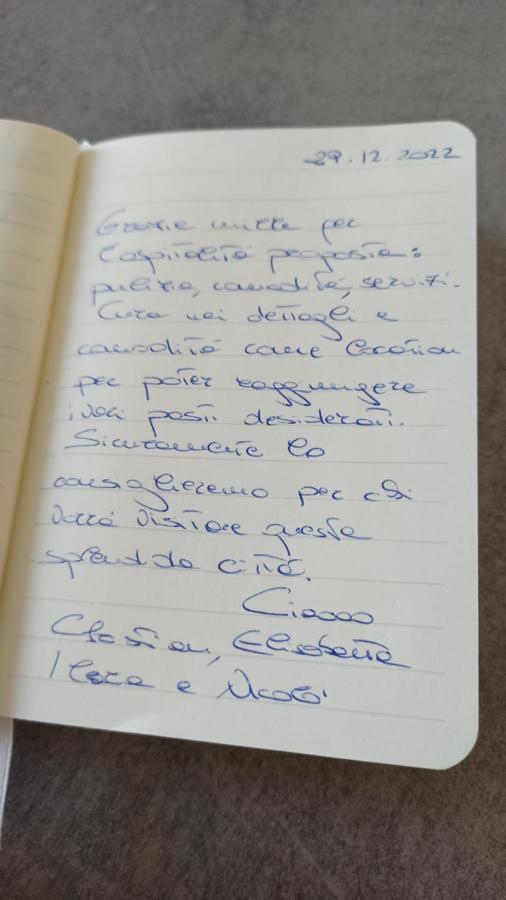 29.12.2022
Grazie mille per
l'ospitalità proposta:
pulizia, comodità, servizi.
Cura nei dettagli e
comodità come location
per poter raggiungere
i vari posti desiderati.
Sicuramente lo
consiglieremo per chi
vorrà visitare questa
splendida città.
Ciaooo
Elisabetta
e